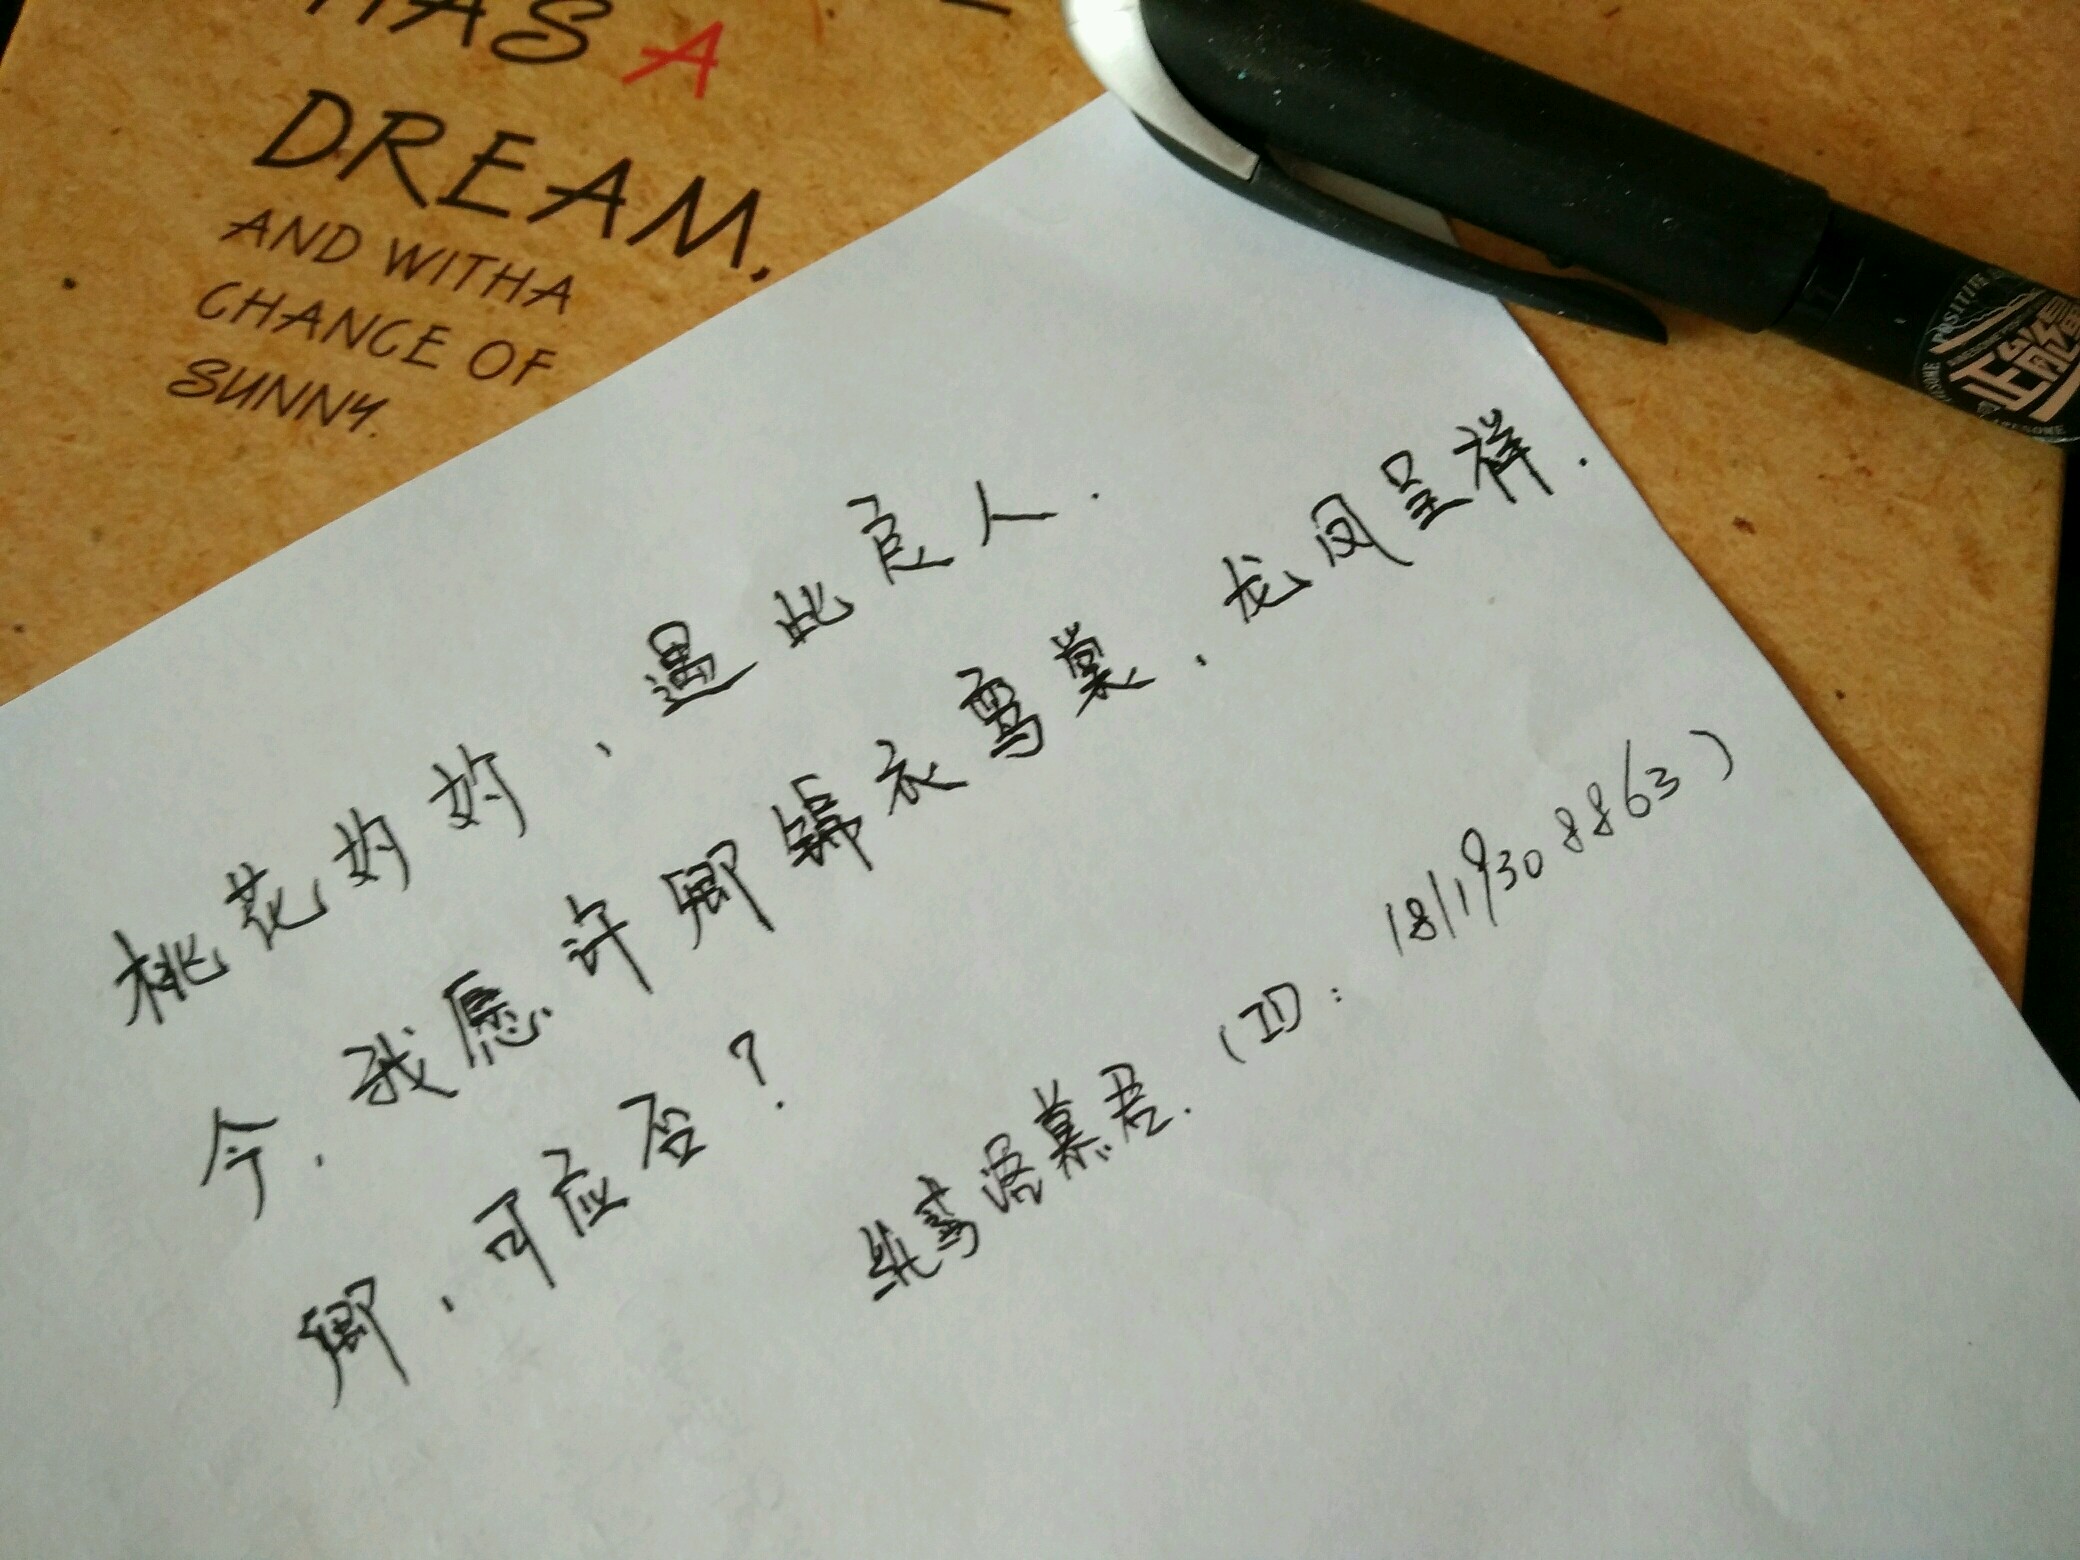 HAS A
DREAM,
AND WITHA
CHANCE OF
SUNNY.
POSITIVE
正能量
桃花灼灼，遇此良人.
今，我愿许卿锦衣霞裳，龙凤呈祥.
卿，可应否？
慕君. (ID: 18119308863)